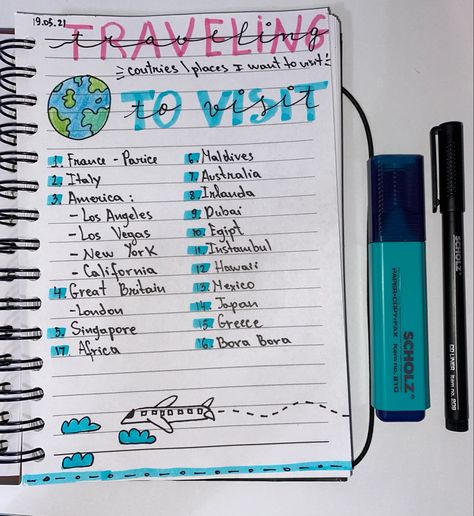 19.05.21
TRAVELING
traveling
coutries \ places I want to visit
TO VISIT
to visit
1. France - Parice
2. Italy
3. America:
- Los Angeles
- Los Vegas
- New York
- California
4. Great Britain
- London
5. Singapore
17. Africa
6. Maldives
7. Australia
8. Irlanda
9. Dubai
10. Egipt
11. Instanbul
12. Hawaii
13. Mexico
14. Japan
15. Greece
16. Bora Bora
SCHOLZ
PAPER-COPY-FAX
Item no. 210
SCHOLZ
CD LINER
Item no. 209